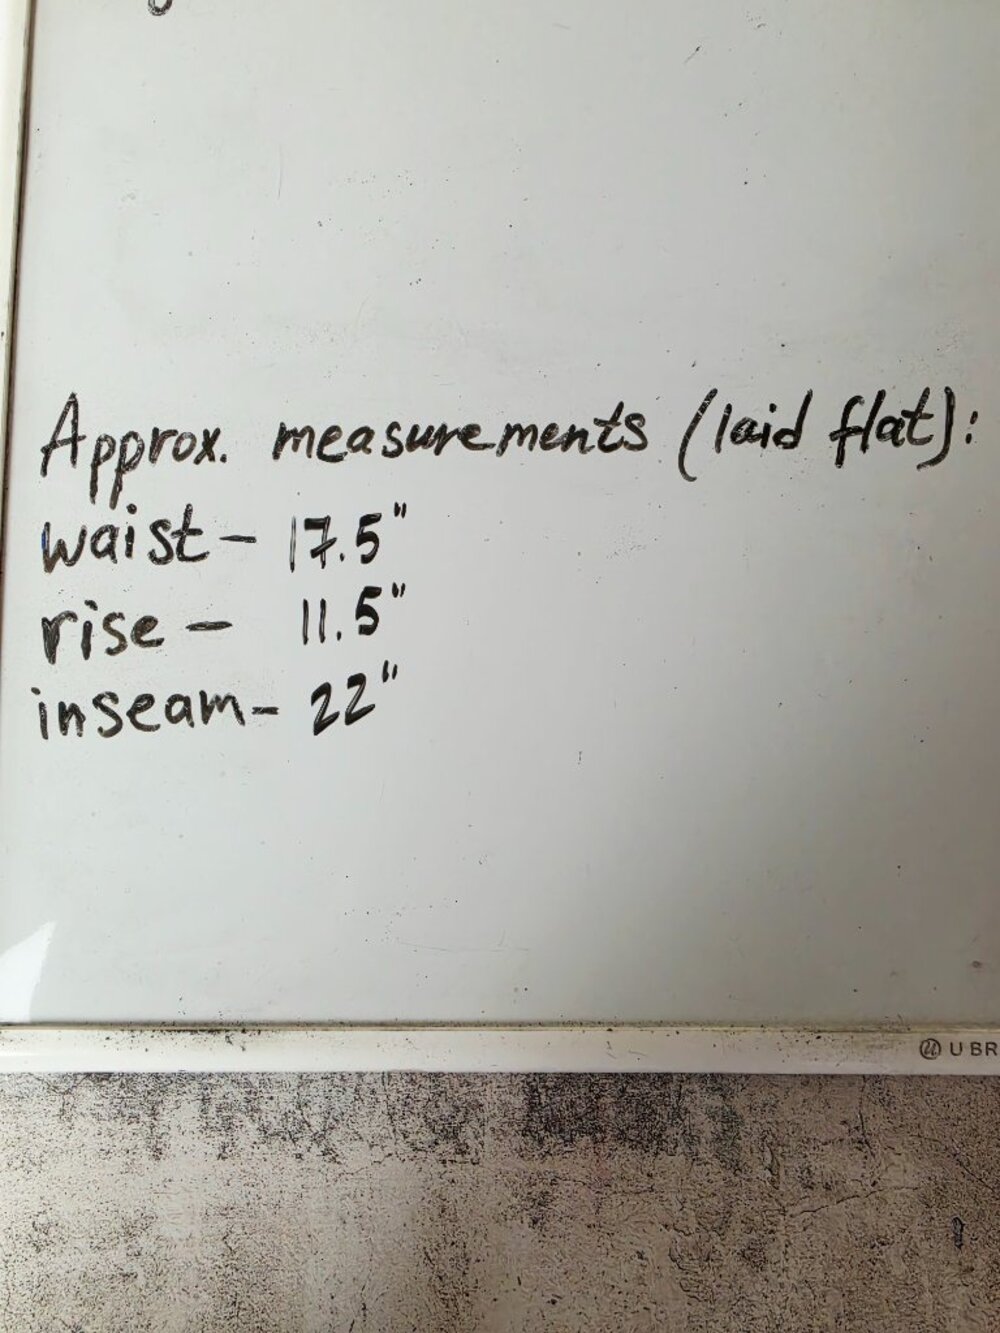 Approx. measurements (laid flat):
waist - 17.5"
rise - 11.5"
inseam - 22"
U BR